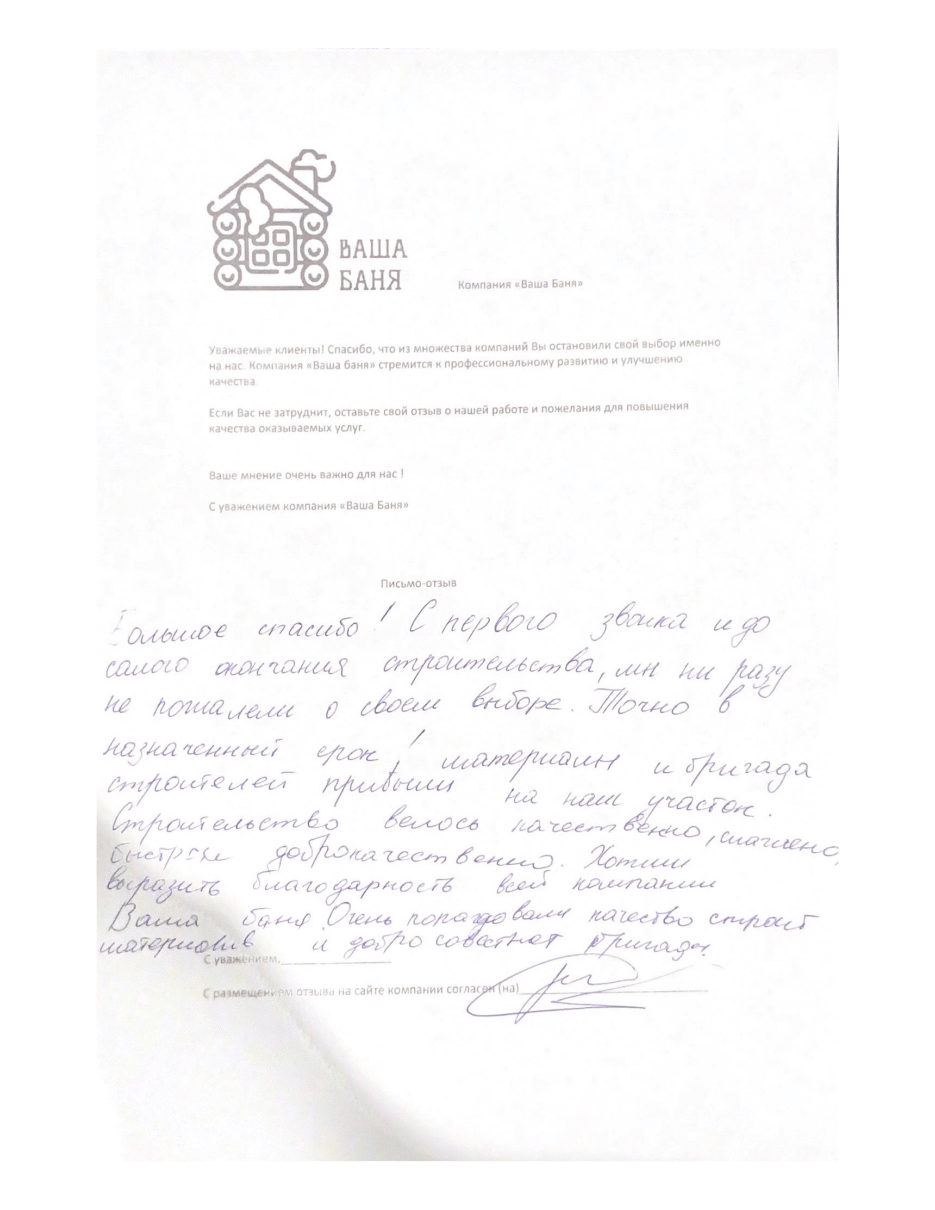 ВАША
БАНЯ
Компания «Ваша Баня»
Уважаемые клиенты! Спасибо, что из множества компаний Вы остановили свой выбор именно
на нас. Компания «Ваша баня» стремится к профессиональному развитию и улучшению
качества.
Если Вас не затруднит, оставьте свой отзыв о нашей работе и пожелания для повышения
качества оказываемых услуг.
Ваше мнение очень важно для нас !
С уважением компания «Ваша Баня»
Письмо-отзыв
Большое спасибо! С первого звонка и до
самого окончания строительства, мы ни разу
не пожалели о своем выборе. Точно в
назначенный срок! материалы и бригада
строителей прибыли на наш участок.
Строительство велось качественно, слажено,
быстро доброкачественно. Хотим
выразить благодарность всей компании
Ваша баня. Очень порадовали качество строит
материалов и добро совестная бригада.
С уважением,
С размещением отзыва на сайте компании согласен (на)